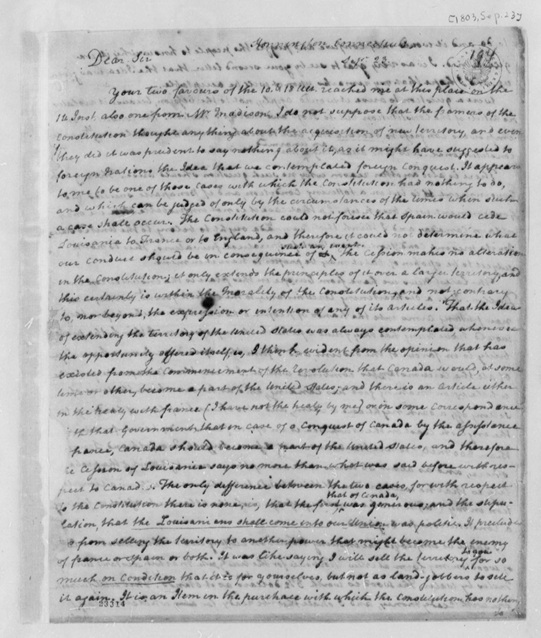 [1803, Sep. 23]
Dear Sir
Your two favours of the 10. & 18 Ult. reached me at this place on the
14 Inst. also one from Mr. Madison. I do not suppose that the framers of the
Constitution thought anything about the acquisition of new territory, and even
they did it was prudent to say nothing about it, as it might have suggested to
foreign Nations the Idea that we contemplated foreign Conquest. It appears
to me to be one of those cases with which the Constitution had nothing to do,
and which can be judged of only by the circumstances of the times when such
a case shall occur. The Constitution could not foresee that Spain would cede
Louisania to France or to England, and therefore it could not determine what
our Conduct should be in consequence of
such an event.
the Cession makes no alteration
in the Constitution; it only extends the principles of it over a larger territory, and
this certainly is within the Morality of the Constitution, and not contrary
to, nor beyond, the expression or intention of any of its articles. That the Idea
of extending the territory of the United States was always contemplated whenever
the opportunity offered itself is, I think, evident from the opinion that has
existed from the Commencement of the Revolution that Canada would, at some
time or other, become a part of the United States, and there is an article either
in the treaty with france (I have not the treaty by me) or in some Correspondence
that Government, that in case of a Conquest of Canada by the assistance
france, Canada should become a part of the United States, and therefore
Cession of Louisania says no more than what was said before with res-
pect to Canada. The only difference between the two cases, for with respect
to the Constitution there is none, is, that the first
that of Canada,
was generous, and the stipu-
lation that the Louisanians shall come into our Union was politic. It precludes
from selling the territory to another power that might become the enemy
of france or Spain or both. It was like saying I will sell the territory for so
much on Condition that it is for yourselves, but not as land-jobbers to sell
it again. It is an Item in the purchase with which the Constitution has nothing
23314